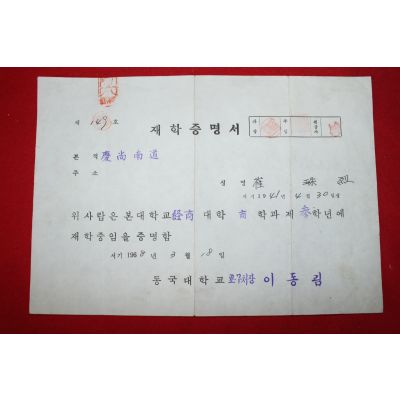 제 149 호
재학증명서
본적 慶尚南道
주소
성명 崔 烈
서기 1941년 4월 30일생
위사람은본대학교經商대학 商 학과제 參학년에
재학중임을증명함
서기 1968년 3월 18일
동국대학교 교무처장 이동림